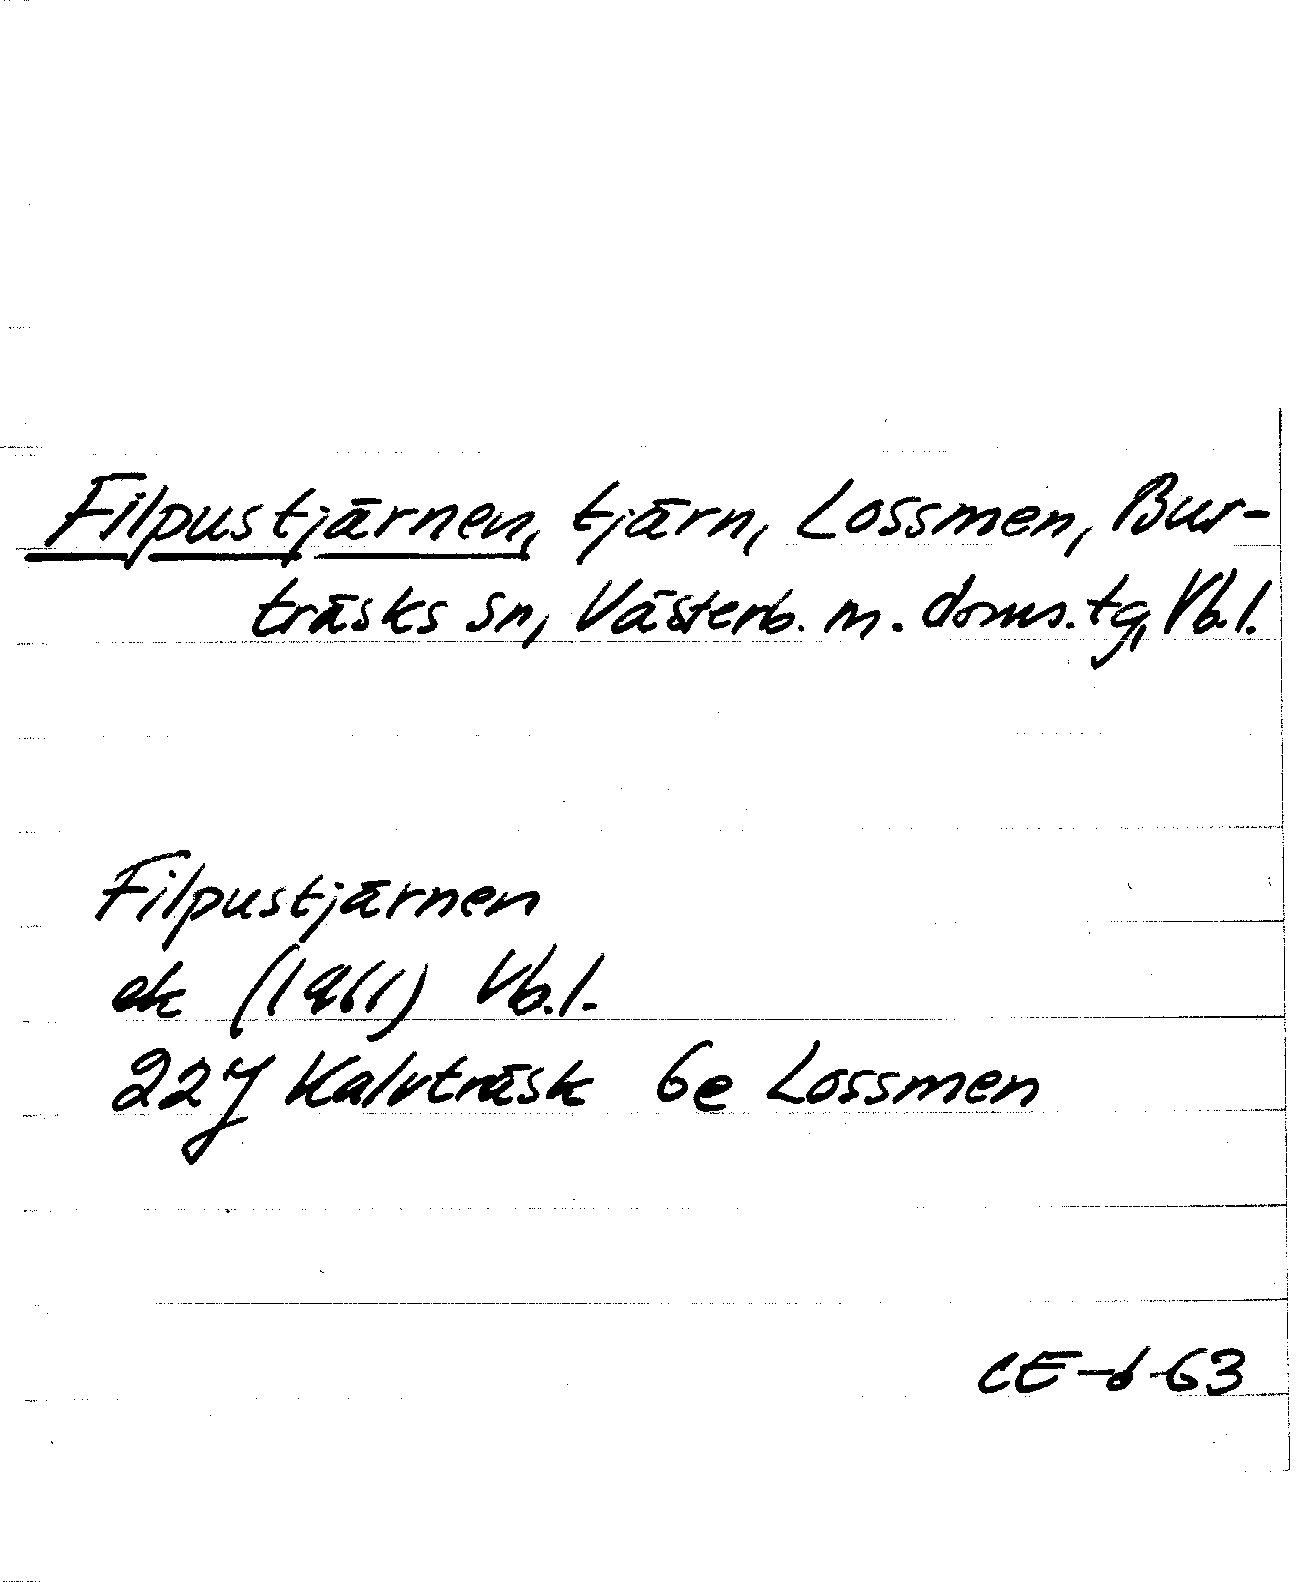 Filpustjärnen, tjärn, Lossmen, Bur-
träsks sn, Västerb. m. doms. tg, Vb.l.
Filpustjärnen
ek (1961) Vb.l.
22J Kalvträsk 6e Lossmen
CE-d-63